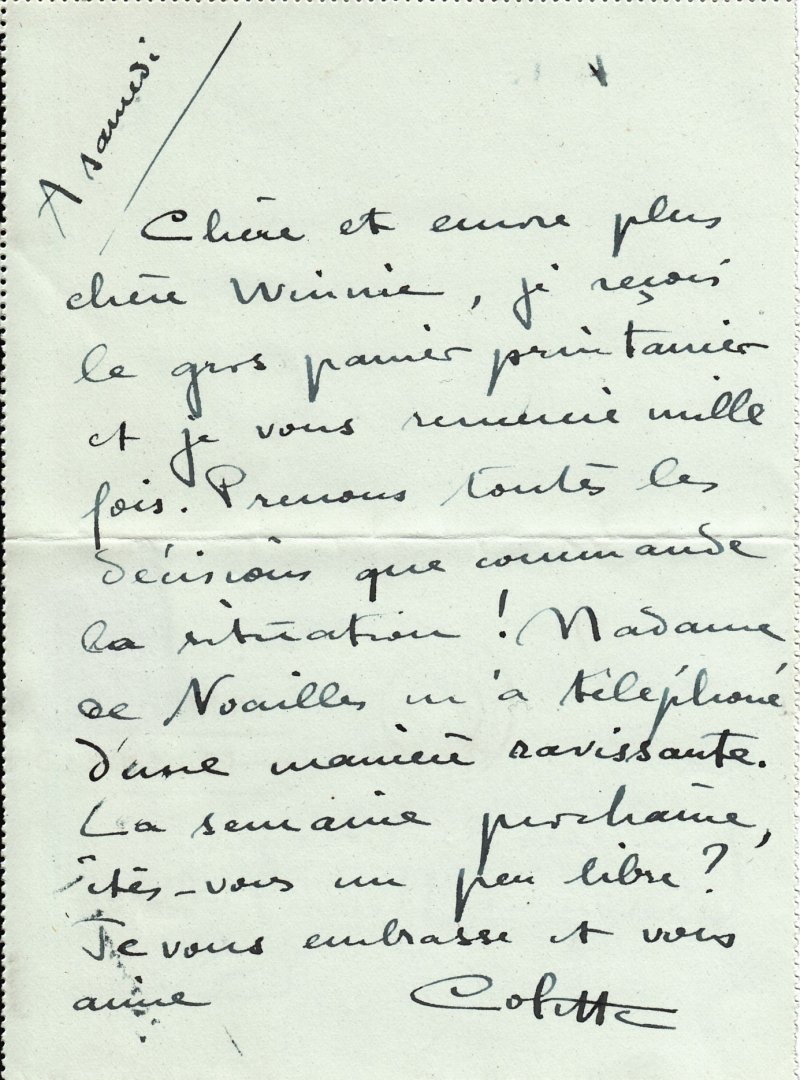 A samedi
Chère et encore plus
chère Winnie, je reçois
le gros panier printanier
et je vous remercie mille
fois. Prenons toutes les
décisions que commande
la situation ! Madame
de Noailles m'a téléphoné
d'une manière ravissante.
La semaine prochaine,
êtes-vous un peu libre ?
Je vous embrasse et vous
aime Colette